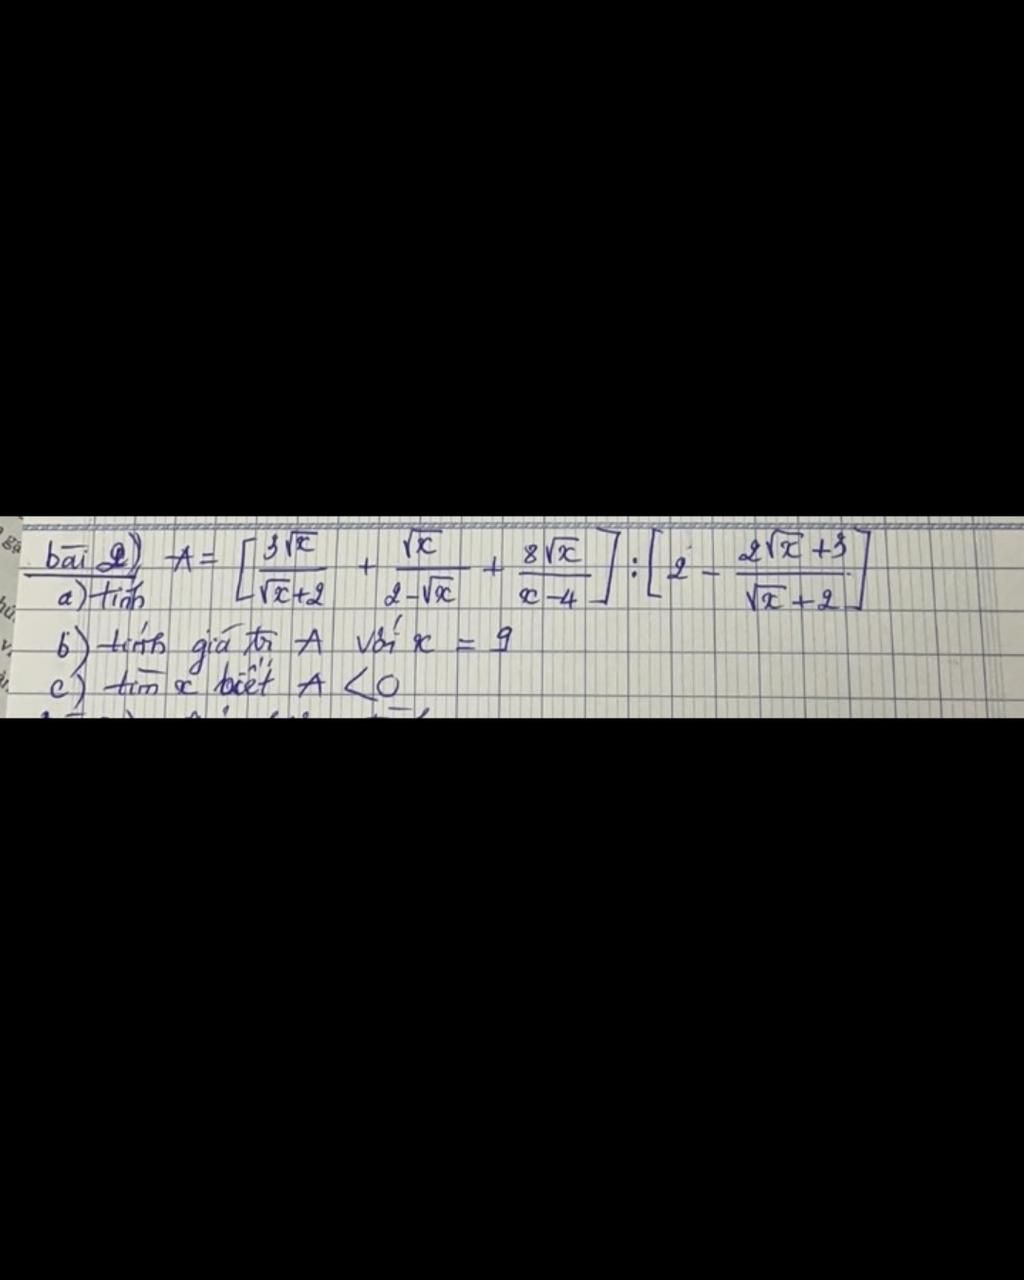 bài 2) A = [3√x/(√x+2) + √x/(2-√x) + 8√x/(x-4)] : [2 - (2√x+3)/(√x+2)]
a) tính
b) tính giá trị A với x = 9
c) tìm x biết A < 0